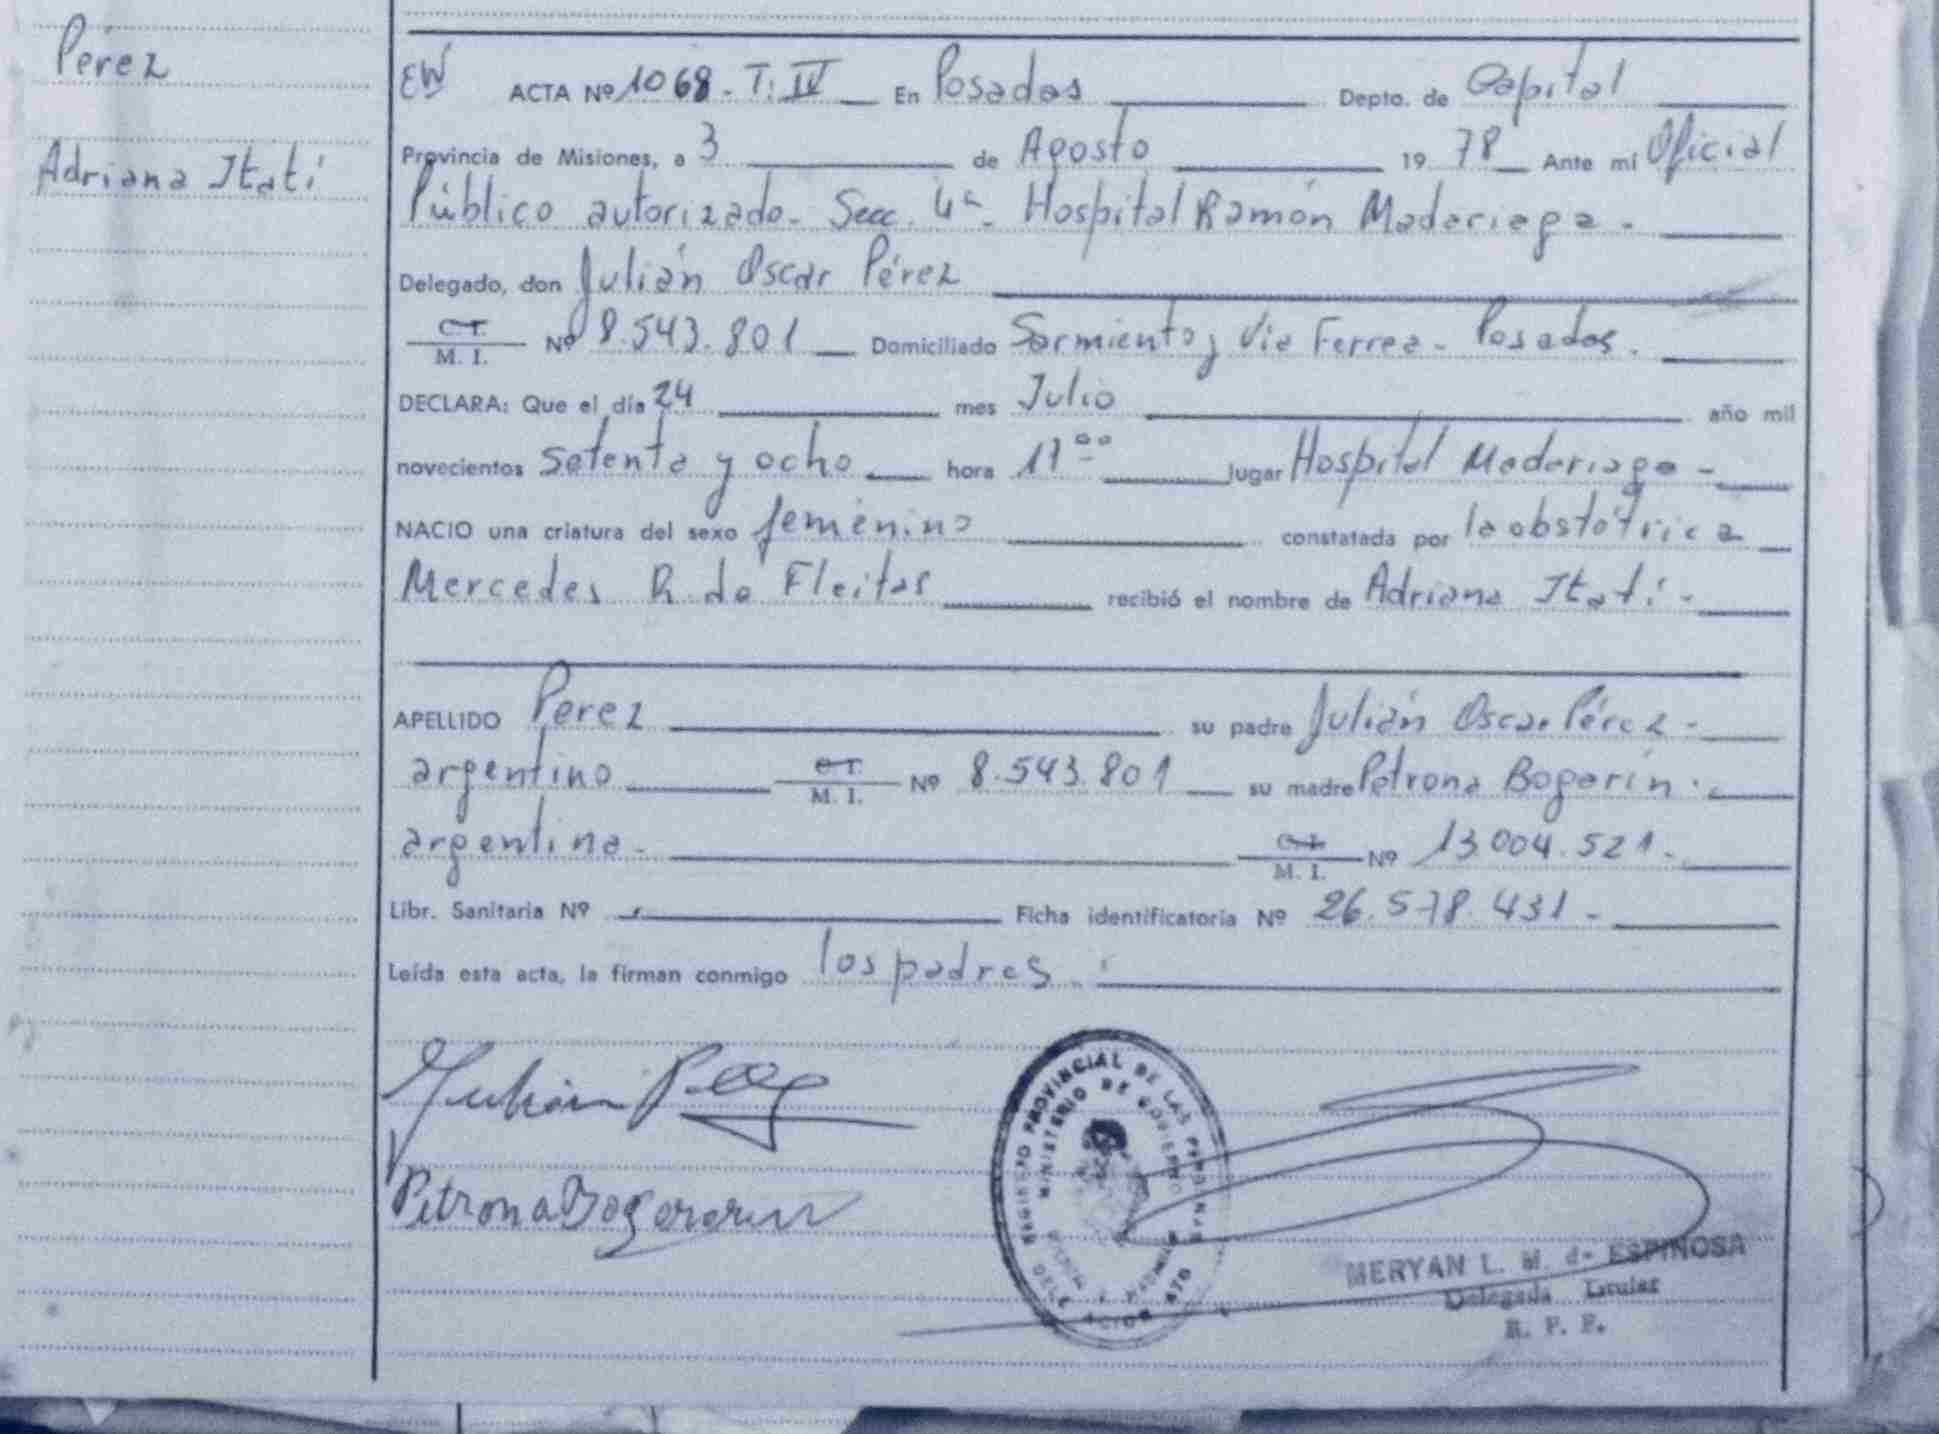 Pérez
Adriana Itatí
EW ACTA Nº 1068 - T: IV En Posadas Depto. de Capital
Provincia de Misiones, a 3 de Agosto 19 78 Ante mí Oficial
Público autorizado - Secc. 4ª - Hospital Ramón Madariaga -
Delegado, don Julián Oscar Pérez
C.I. M. I. Nº 8.543.801 Domiciliado Sarmiento y Vía Ferrea - Posadas.
DECLARA: Que el día 24 mes Julio año mil
novecientos setenta y ocho hora 17⁰⁰ lugar Hospital Madariaga -
NACIO una criatura del sexo femenino constatada por la obstétrica
Mercedes R. de Fleitas recibió el nombre de Adriana Itatí -
APELLIDO Perez su padre Julián Oscar Pérez -
argentino C.I. M. I. Nº 8.543.801 su madre Petrona Bogarín.
argentina - C.I. M. I. Nº 13.004.521 -
Libr. Sanitaria Nº Ficha identificatoria Nº 26.578.431 -
Leída esta acta, la firman conmigo los padres.
Julián
Petrona
REGISTRO PROVINCIAL DE LAS PERSONAS
MINISTERIO DE GOBIERNO
MERYAN L. M. de ESPINOSA
Delegada Titular
R. P. P.